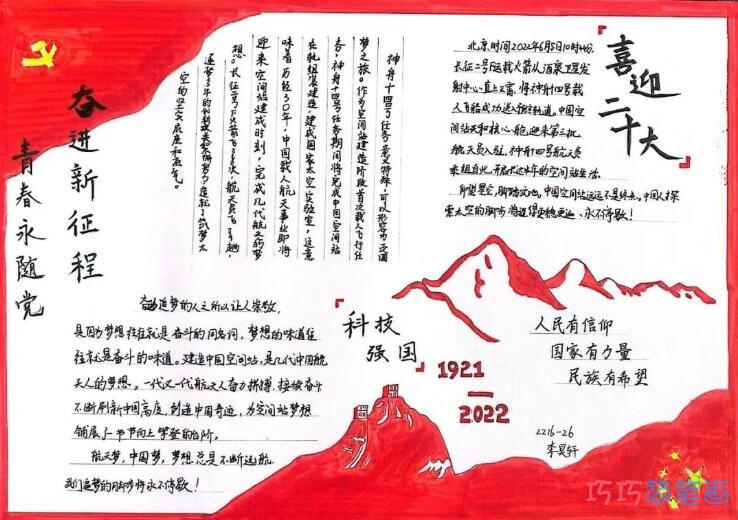 奋进新征程
青春永随党
神舟十四号任务意义特殊，可以形容为逐圆
梦之旅。作为空间站建造阶段首次载人飞行任
务，神舟十四号任务期间将完成中国空间站
在轨组装建造，建成国家太空实验室，这意
味着历经30年，中国载人航天事业即将
迎来空间站建成时刻，完成几代航天的梦
想。长征二号
空的坚实底座和底气。
喜迎
二十大
北京时间2022年6月5日10时44分，
长征二号F运载火箭从酒泉卫星发
射中心直上云霄，将神舟十四号载
人飞船成功送入预定轨道。中国空
间站天和核心舱迎来第三批
航天员入驻，神舟十四号航天员
乘组自此，开启长达半年的空间站生活。
仰望星空，脚踏实地。中国空间站远远不是终点。中国人探
索太空的脚步将迈得更稳更远、永不停歇！
奋勇追梦的人之所以让人崇敬，
是因为梦想往往就是奋斗的同名词，梦想的味道往
往就是奋斗的味道。建造中国空间站，是几代中国航
天人的梦想。一代又一代航天人奋力拼搏，接续奋斗
不断刷新中国高度，创造中国奇迹，为空间站梦想
铺展了一节节向上攀登的台阶。
航天梦，中国梦，梦想总是不断远航
我们追梦的脚步将永不停歇！
科技
强国
1921
—
2022
人民有信仰
国家有力量
民族有希望
2216-26
李昊轩
巧巧简笔画